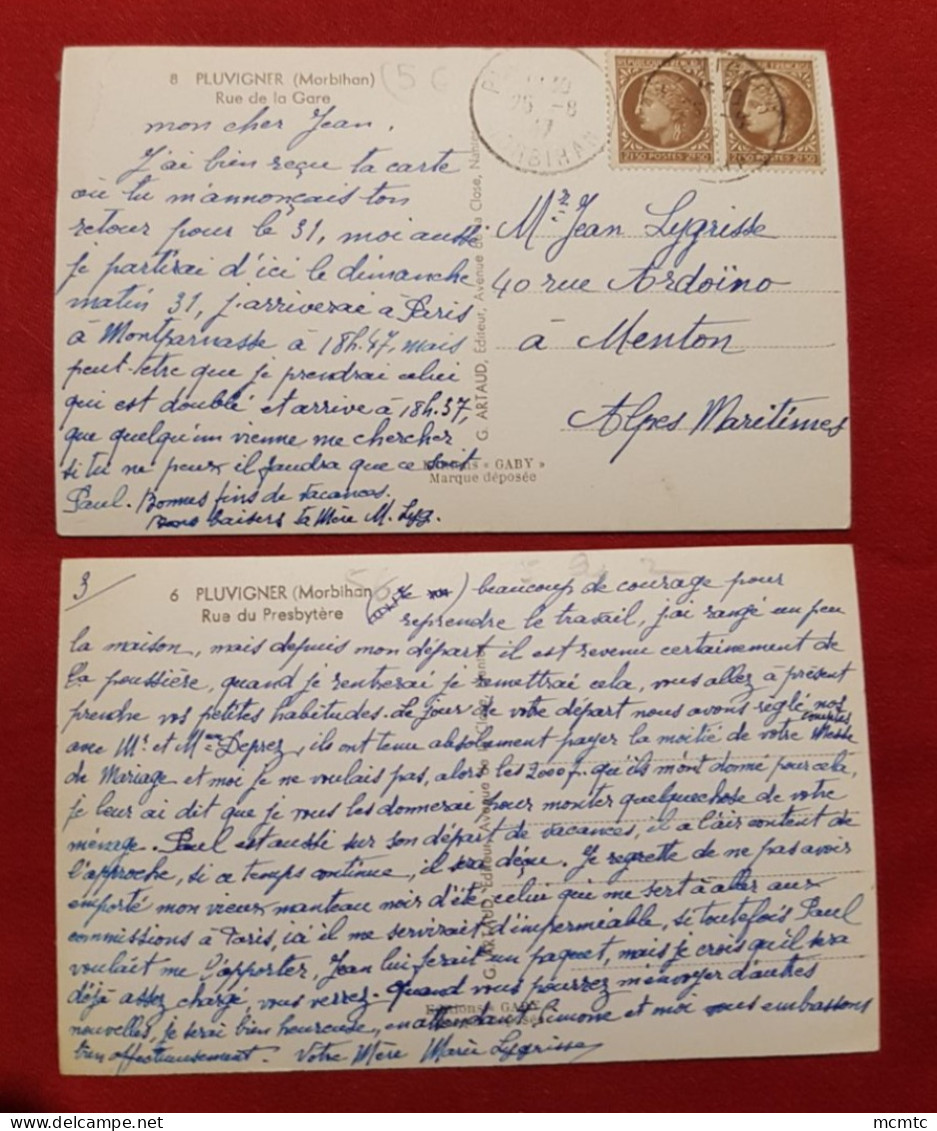 8 PLUVIGNER (Morbihan)
Rue de la Gare
(56
mon cher Jean,
J'ai bien reçu ta carte
où tu m'annonçais ton
retour pour le 31, moi aussi
je partirai d'ici le dimanche
matin 31, j'arriverai à Paris
à Montparnasse à 18h.47, mais
peut-être que je prendrai celui
qui est doublé et arrive à 18h.37,
que quelqu'un vienne me chercher
si tu ne peux, il faudra que ce soit
Paul. Bonnes fins de vacances.
bons baisers ta Mère M. Lyg.
G. ARTAUD, Editeur, Avenue de la Close, Nantes
Editions « GABY »
Marque déposée
26 -8
47
MORBIHAN
REPUBLIQUE FRANÇAISE
2F50 POSTES 2F50
2F50 POSTES 2F50
Mr Jean Lygrisse
40 rue Ardoïno
à Menton
Alpes Maritimes
3/
6 PLUVIGNER (Morbihan
Rue du Presbytère
56
beaucoup de courage pour
reprendre le travail, j'ai rangé un peu
la maison, mais depuis mon départ il est revenu certainement de
la poussière, quand je rentrerai je remettrai cela, vous allez à présent
prendre vos petites habitudes. Le jour de votre départ nous avons réglé nos comptes
avec Mr et Mme Deprez, ils ont tenu absolument payer la moitié de votre Messe
de Mariage et moi je ne voulais pas, alors les 2000f. qu'ils m'ont donné pour cela,
je leur ai dit que je vous les donnerai pour monter quelque chose de votre
ménage. Paul est aussi sur son départ de vacances, il a l'air content de
l'approche, si ce temps continue, il sera déçu. Je regrette de ne pas avoir
emporté mon vieux manteau noir d'été, celui qui me sert à aller aux
commissions à Paris, ici il me servirait d'imperméable, si toutefois Paul
voulait me l'apporter, Jean lui ferait un paquet, mais je crois qu'il sera
déjà assez chargé, vous verrez. Quand vous pourrez m'envoyer d'autres
nouvelles, je serai bien heureuse, en attendant Simone et moi vous embrassons
bien affectueusement. Votre Mère Marie Lygrisse
G. ARTAUD, Editeur, Avenue de la Close, Nantes
Editions « GABY
déposée
mcmtc